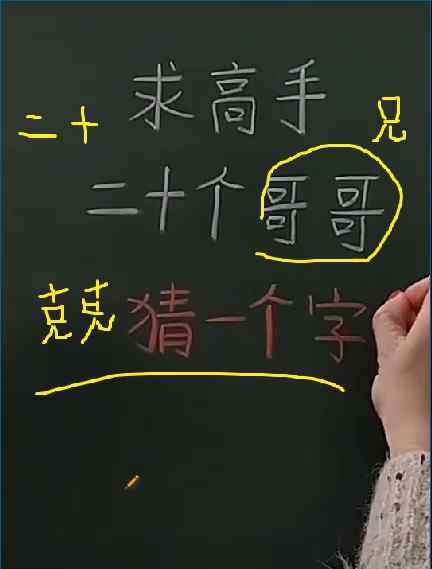 求高手
二十 兄
二十个哥哥
克克 猜一个字